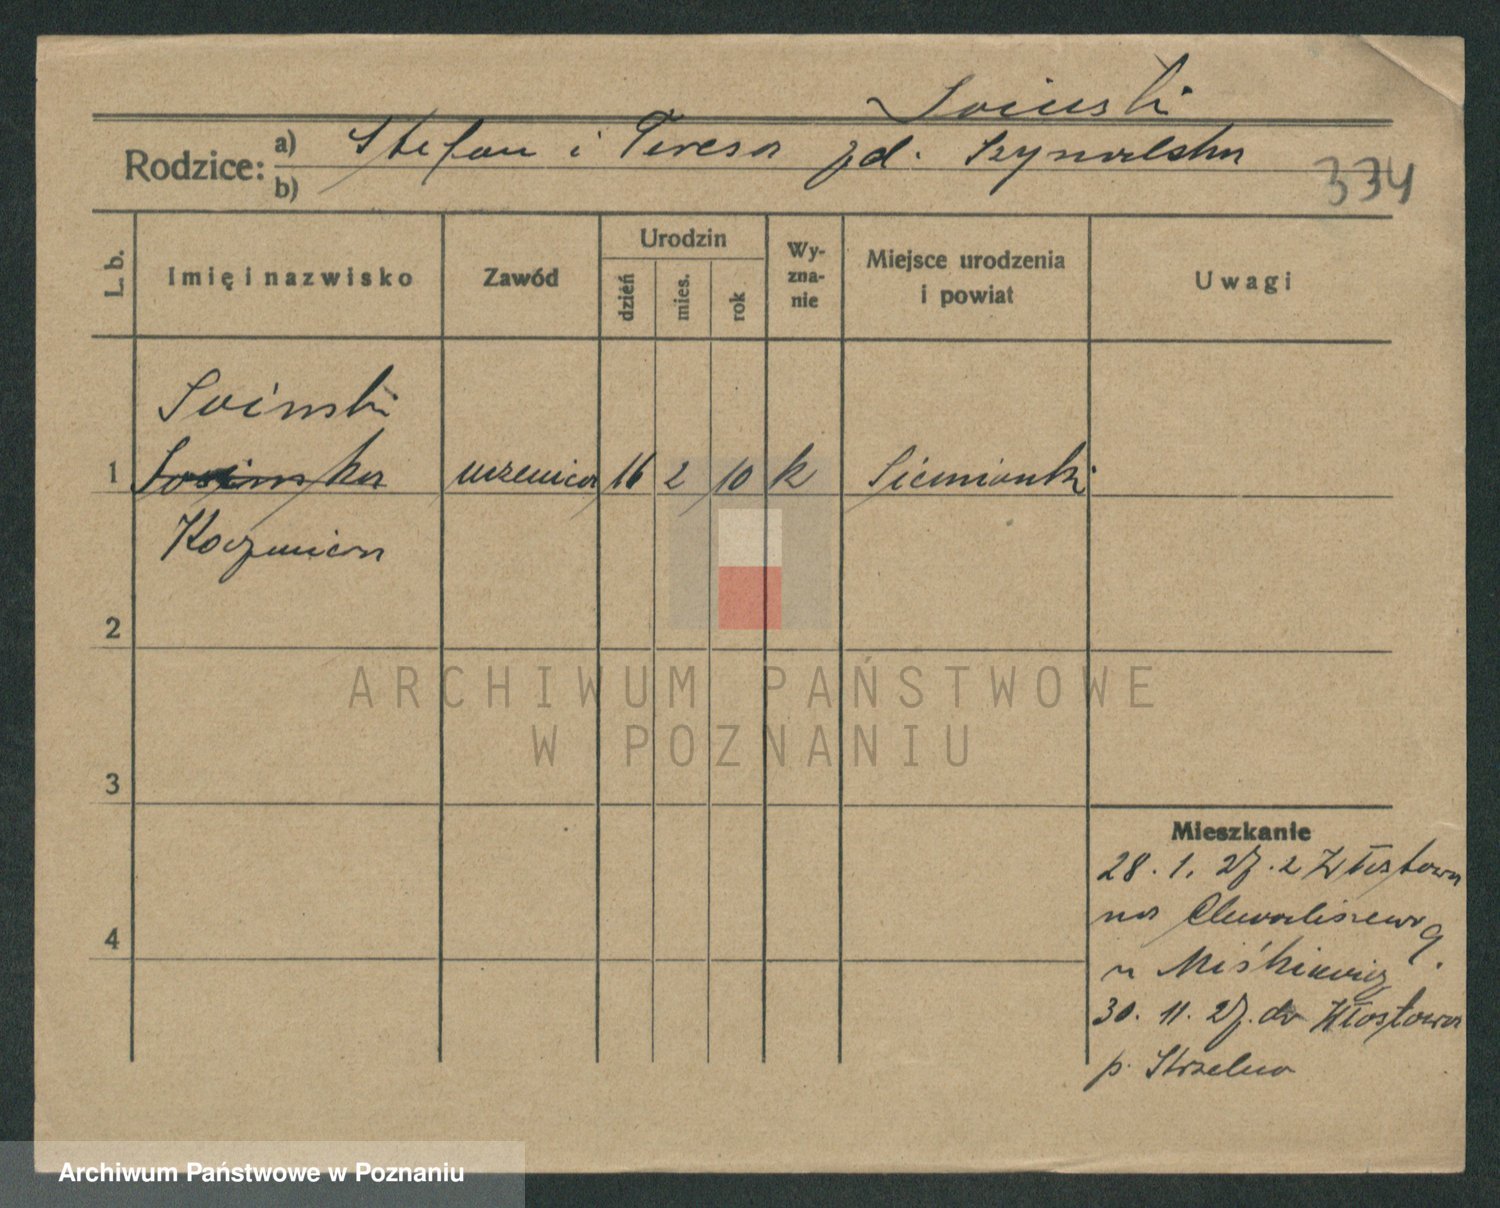 Soiński
Rodzice: a) Stefan i Teresa zd. Szymalska
b)
334
L. b.
Imię i nazwisko
Zawód
Urodzin
dzień
mies.
rok
Wy-
zna-
nie
Miejsce urodzenia
i powiat
Uwagi
Soiński
1 uczenica 16 2 10 k Siemionki
Kazmiera
2
3
4
Mieszkanie
28. 1. 27. z Włostowa
na Chwaliszewo 9.
u Miśkiewicz
30. 11. 27. do Włostowa
p. Strzelno
ARCHIWUM PAŃSTWOWE
W POZNANIU
Archiwum Państwowe w Poznaniu